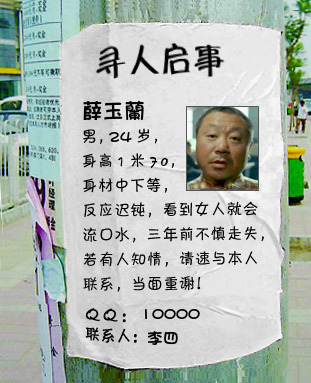 寻人启事
薛玉蘭
男,24岁,
身高1米70,
身材中下等,
反应迟钝,看到女人就会
流口水,三年前不慎走失,
若有人知情,请速与本人
联系,当面重谢!
QQ:10000
联系人:李四